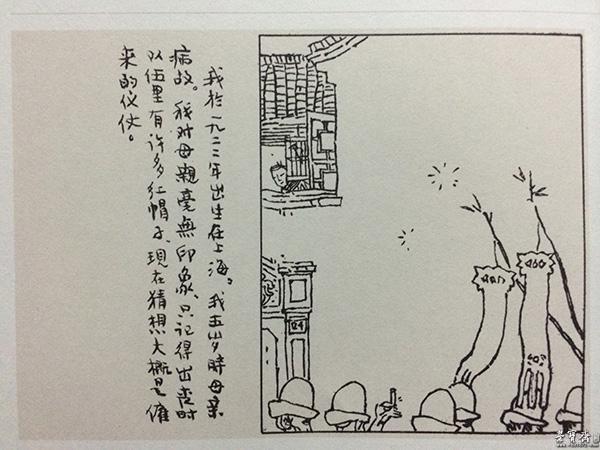 我於一九二二年出生在上海。我五岁時母亲
病故。我对母親毫無印象、只记得出丧时
队伍里有许多红帽子、現在猜想大概是僱
来的仪仗。